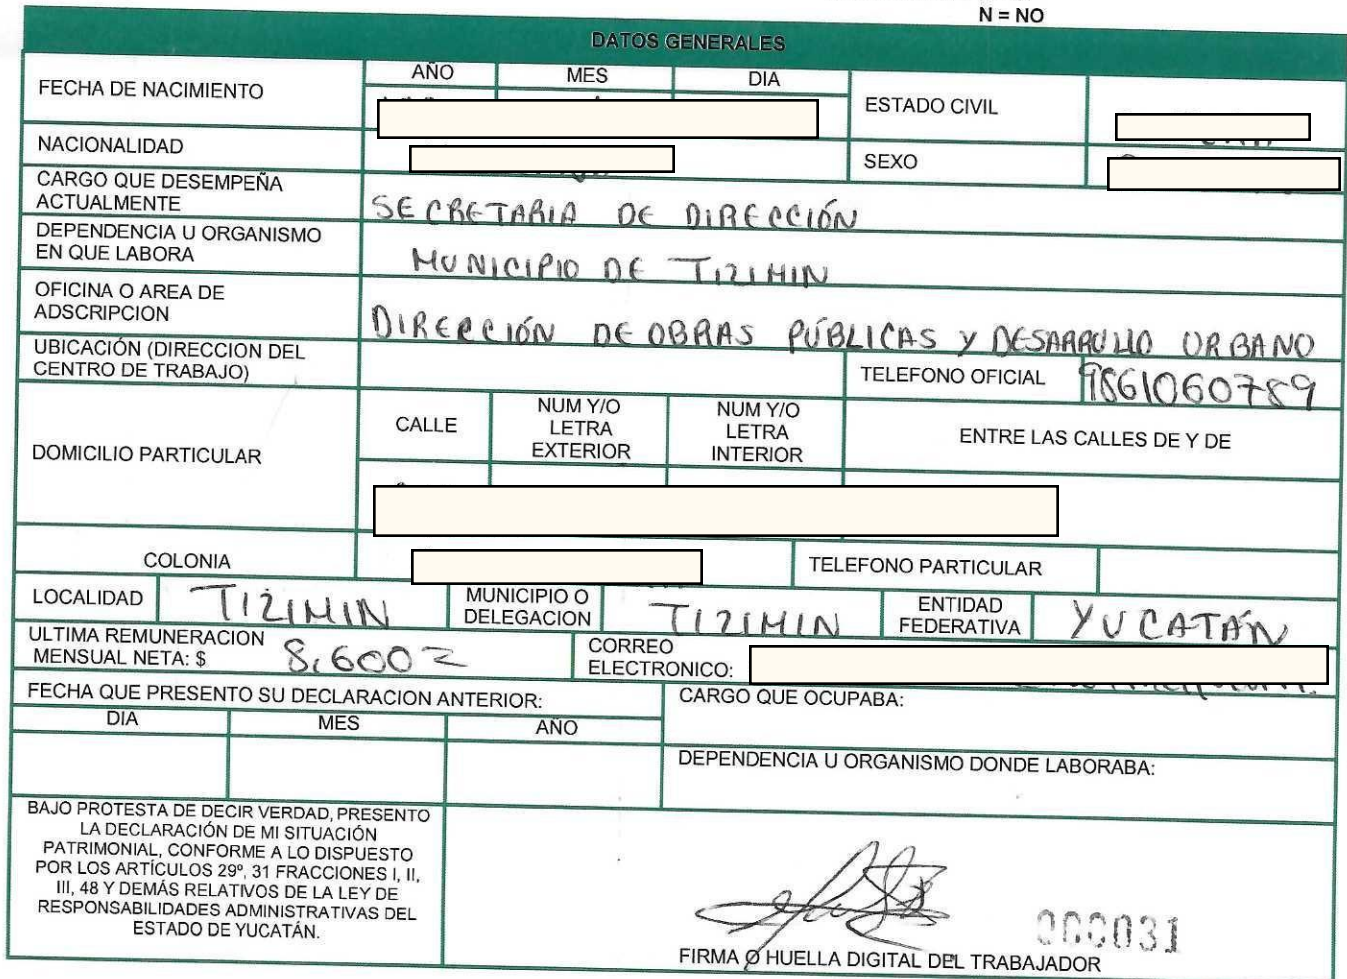 N = NO
DATOS GENERALES
FECHA DE NACIMIENTO
AÑO MES DIA
ESTADO CIVIL
NACIONALIDAD
SEXO
CARGO QUE DESEMPEÑA
ACTUALMENTE
SECRETARIA DE DIRECCIÓN
DEPENDENCIA U ORGANISMO
EN QUE LABORA
MUNICIPIO DE TIZIMIN
OFICINA O AREA DE
ADSCRIPCION
DIRECCIÓN DE OBRAS PÚBLICAS Y DESARROLLO URBANO
UBICACIÓN (DIRECCION DEL
CENTRO DE TRABAJO)
TELEFONO OFICIAL 9861060789
DOMICILIO PARTICULAR
CALLE
NUM Y/O
LETRA
EXTERIOR
NUM Y/O
LETRA
INTERIOR
ENTRE LAS CALLES DE Y DE
COLONIA
TELEFONO PARTICULAR
LOCALIDAD TIZIMIN
MUNICIPIO O
DELEGACION
TIZIMIN
ENTIDAD
FEDERATIVA
YUCATÁN
ULTIMA REMUNERACION
MENSUAL NETA: $ 8,600
CORREO
ELECTRONICO:
FECHA QUE PRESENTO SU DECLARACION ANTERIOR:
CARGO QUE OCUPABA:
DIA MES AÑO
DEPENDENCIA U ORGANISMO DONDE LABORABA:
BAJO PROTESTA DE DECIR VERDAD, PRESENTO
LA DECLARACIÓN DE MI SITUACIÓN
PATRIMONIAL, CONFORME A LO DISPUESTO
POR LOS ARTÍCULOS 29º, 31 FRACCIONES I, II,
III, 48 Y DEMÁS RELATIVOS DE LA LEY DE
RESPONSABILIDADES ADMINISTRATIVAS DEL
ESTADO DE YUCATÁN.
000031
FIRMA O HUELLA DIGITAL DEL TRABAJADOR